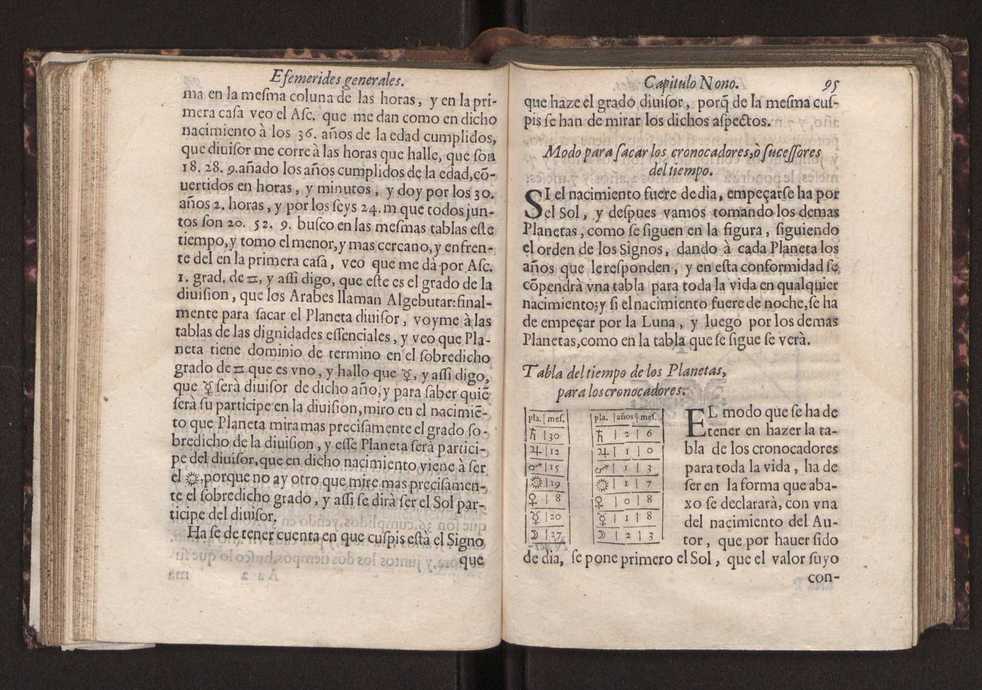 Efemerides generales.
ma en la meſma coluna de las horas, y en la pri-
mera caſa veo el Aſc. que me dan como en dicho
nacimiento à los 36. años de la edad cumplidos,
que diuiſor me corre à las horas que halle, que ſon
18. 28. 9. añado los años cumplidos de la edad, cõ-
uertidos en horas, y minutos, y doy por los 30.
años 2. horas, y por los ſeys 24. m que todos jun-
tos ſon 20. 52. 9. buſco en las meſmas tablas eſte
tiempo, y tomo el menor, y mas cercano, y enfren-
te del en la primera caſa, veo que me dà por Aſc.
1. grad. de ♎, y aſsi digo, que eſte es el grado de la
diuiſion, que los Arabes llaman Algebutar: final-
mente para ſacar el Planeta diuiſor, voyme à las
tablas de las dignidades eſſenciales, y veo que Pla-
neta tiene dominio de termino en el ſobredicho
grado de ♎ que es vno, y hallo que ☿, y aſsi digo,
que ☿ ſerà diuiſor de dicho año; y para ſaber quiẽ
ſera ſu participe en la diuiſion, miro en el nacimiẽ-
to que Planeta mira mas preciſamente el grado ſo-
bredicho de la diuiſion, y eſſe Planeta ſerà partici-
pe del diuiſor, que en dicho nacimiento viene à ſer
el ☼, porque no ay otro que mire mas preciſamen-
te el ſobredicho grado, y aſsi ſe dirà ſer el Sol par-
ticipe del diuiſor.
Ha ſe de tener cuenta en que cuſpis eſtà el Signo
que
Capitulo Nono. 95
que haze el grado diuiſor, porq̃ de la meſma cuſ-
pis ſe han de mirar los dichos aſpectos.
Modo para ſacar los cronocadores, ò ſuceſſores
del tiempo.
SI el nacimiento fuere de dia, empeçarſe ha por
el Sol, y deſpues vamos tomando los demas
Planetas, como ſe ſiguen en la figura, ſiguiendo
el orden de los Signos, dando à cada Planeta los
años que le reſponden, y en eſta conformidad ſe
cõpendrà vna tabla para toda la vida en qualquier
nacimiento; y ſi el nacimiento fuere de noche, ſe ha
de empeçar por la Luna, y luego por los demas
Planetas, como en la tabla que ſe ſigue ſe verà.
Tabla del tiempo de los Planetas,
para los cronocadores.
pla. | meſ.
♄ | 30
♃ | 12
♂ | 15
☼ | 19
♀ | 8
☿ | 20
☽ | 27
pla. | años | meſ.
♄ | 2 | 6
♃ | 1 | 0
♂ | 1 | 3
☼ | 1 | 7
♀ | 0 | 8
☿ | 1 | 8
☽ | 2 | 3
EL modo que ſe ha de
tener en hazer la ta-
bla de los cronocadores
para toda la vida, ha de
ſer en la forma que aba-
xo ſe declararà, con vna
del nacimiento del Au-
tor, que por hauer ſido
de dia, ſe pone primero el Sol, que el valor ſuyo
con-